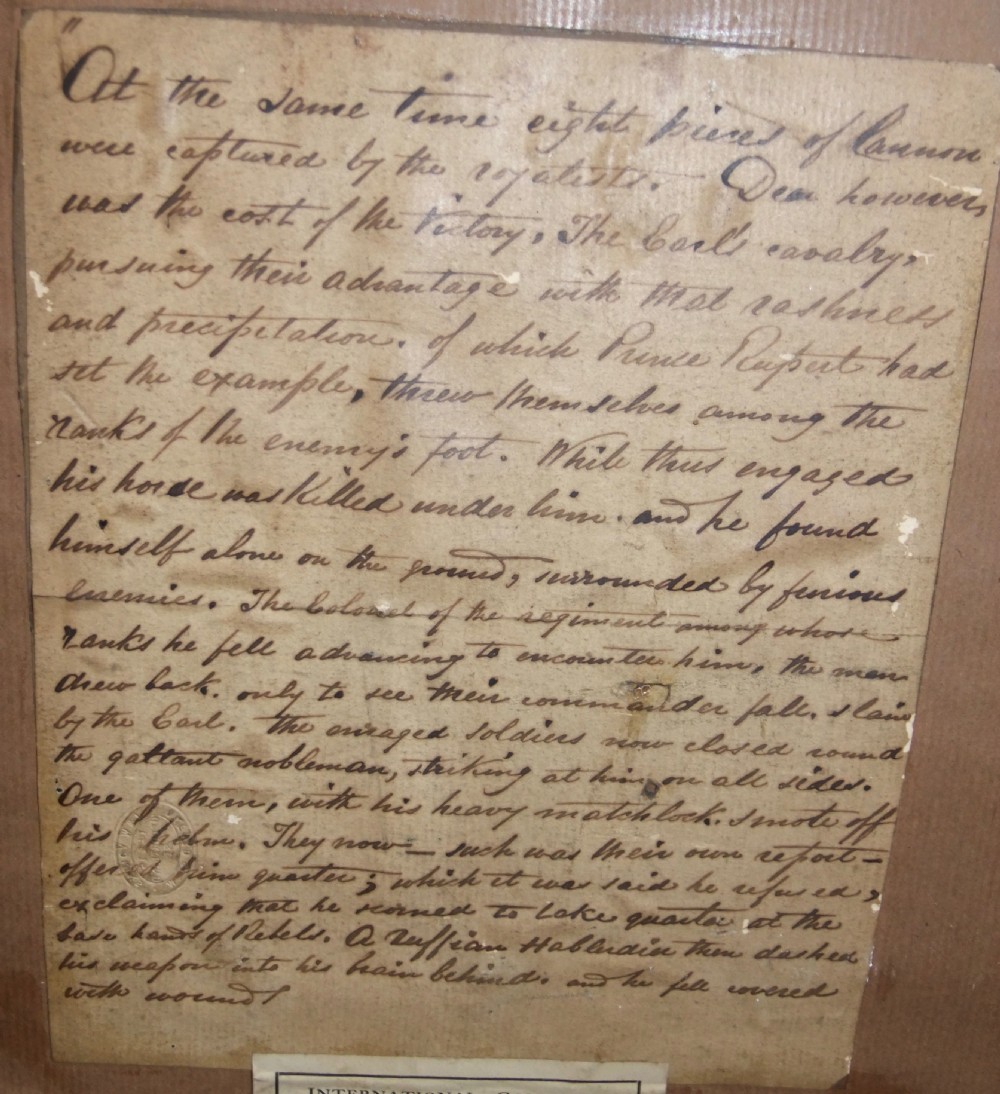 "At the same time eight pieces of Cannon
were captured by the royalists. Dear however,
was the cost of the Victory. The Earl's cavalry,
pursuing their advantage with that rashness
and precipitation. of which Prince Rupert had
set the example, threw themselves among the
ranks of the enemy's foot. While thus engaged
his horse was Killed under him. and he found
himself alone on the ground, surrounded by furious
Enemies. The Colonel of the regiment among whose
ranks he fell advancing to encounter him, the men
drew back. only to see their commander fall. slain
by the Earl. The enraged soldiers now closed round
the gallant nobleman, striking at him on all sides.
One of them, with his heavy matchlock. smote off
his helm. They now — such was their own report —
offer him quarter; which it was said he refused,
exclaiming that he scorned to take quarter at the
base hands of Rebels. A ruffian Halberdier then dashed
his weapon into his brain behind. and he fell covered
with wounds
INTERNATIONAL